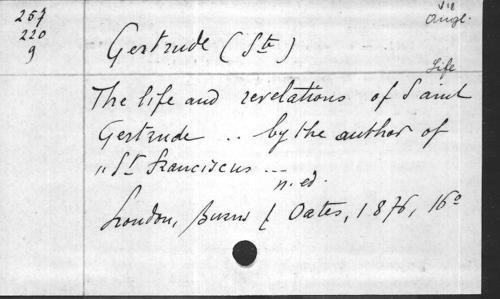 257
220
9
Vie
Angl.
Gertrude (Ste)
Life
The life and revelations of Saint
Gertrude .. by the author of
"St Franciscus ...
n. ed.
London, Burns & Oates, 1876, 16°